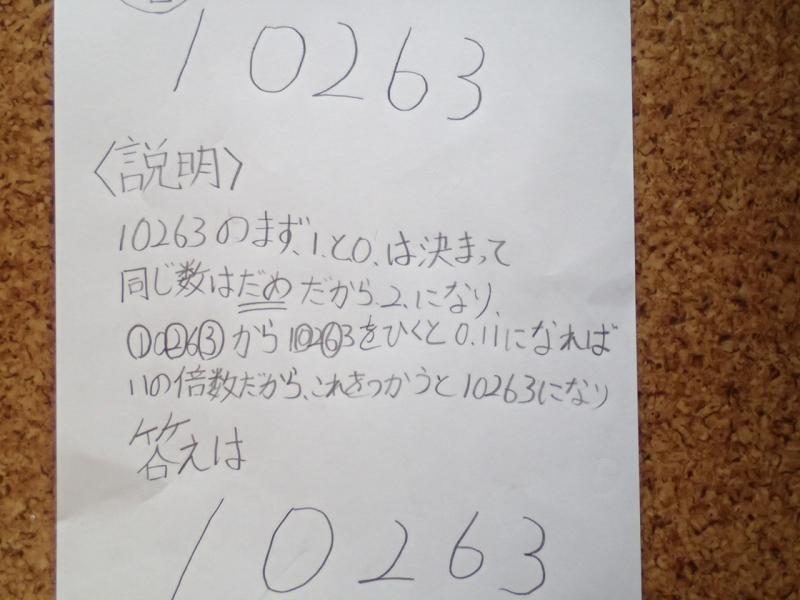 10263
〈説明〉
10263のまず、1.と0.は決まって
同じ数はだめだから、2.になり、
①0②6③から1⓪2⑥3をひくと0.11になれば
11の倍数だから、これをつかうと10263になり
答えは
10263